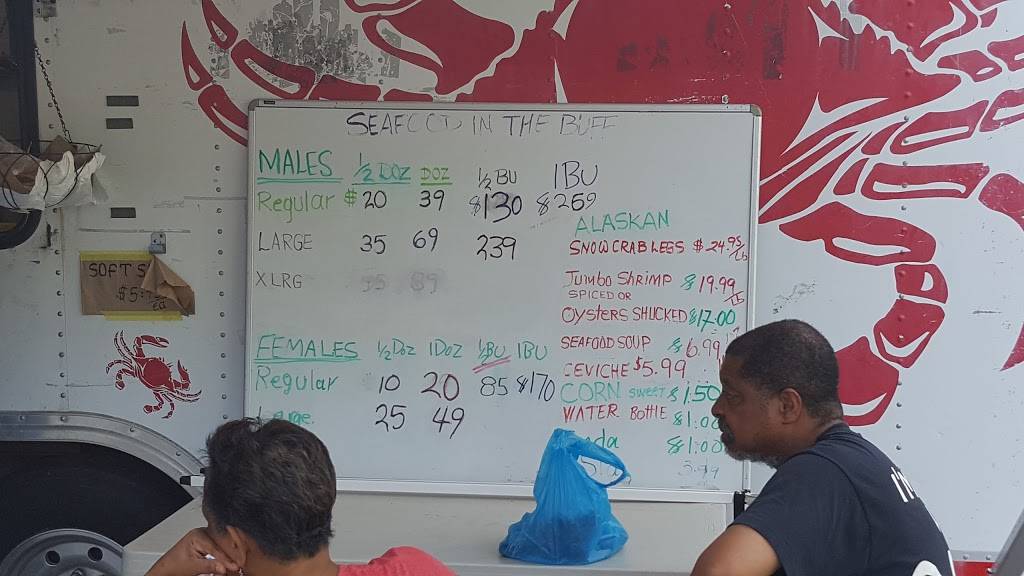 SEAFOOD IN THE BUFF
MALES 1/2 DOZ DOZ 1/2 BU 1BU
Regular $20 39 $130 $259
LARGE 35 69 239
XLRG 89
FEMALES 1/2 Doz 1Doz 1/2BU 1BU
Regular 10 20 85 $170
25 49
ALASKAN
SNOW CRAB LEGS $24.95/Lb
Jumbo Shrimp $19.99
SPICED OR
OYSTERS SHUCKED $17.00
SEAFOOD SOUP $6.99
CEVICHE $5.99
CORN SWEET $1.50
WATER BOttlE $1.00
$1.00
SOFT S
$5
I'M